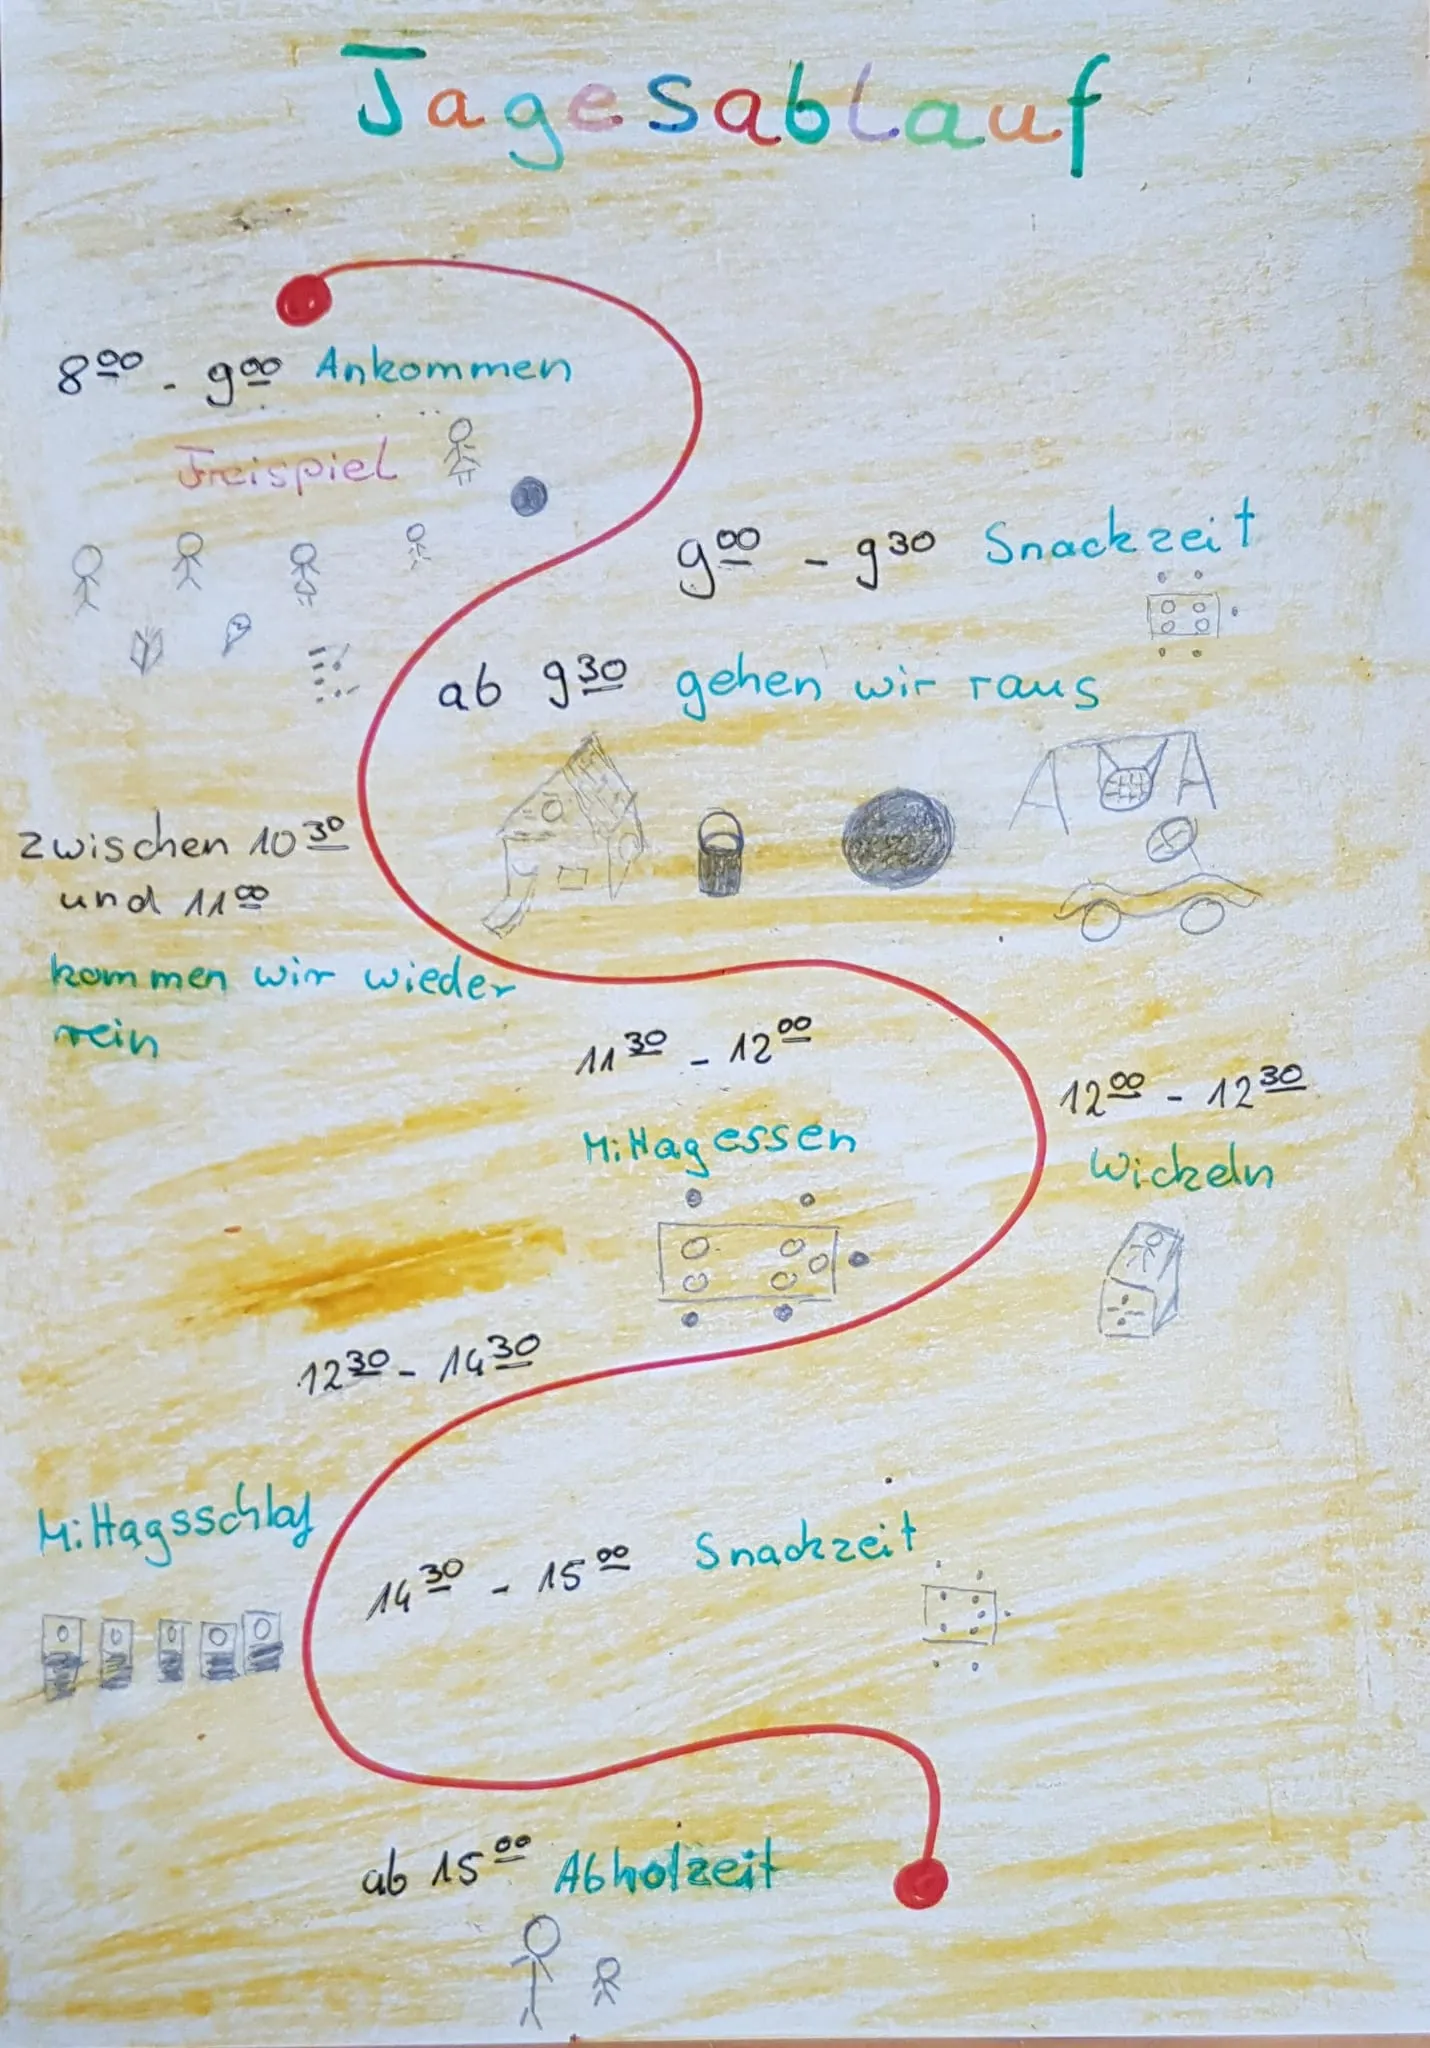 Tagesablauf
8⁰⁰ - 9⁰⁰ Ankommen
Freispiel
9⁰⁰ - 9³⁰ Snackzeit
ab 9³⁰ gehen wir raus
zwischen 10³⁰
und 11⁰⁰
kommen wir wieder
rein
11³⁰ - 12⁰⁰
Mittagessen
12⁰⁰ - 12³⁰
Wickeln
12³⁰ - 14³⁰
Mittagsschlaf
14³⁰ - 15⁰⁰ Snackzeit
ab 15⁰⁰ Abholzeit